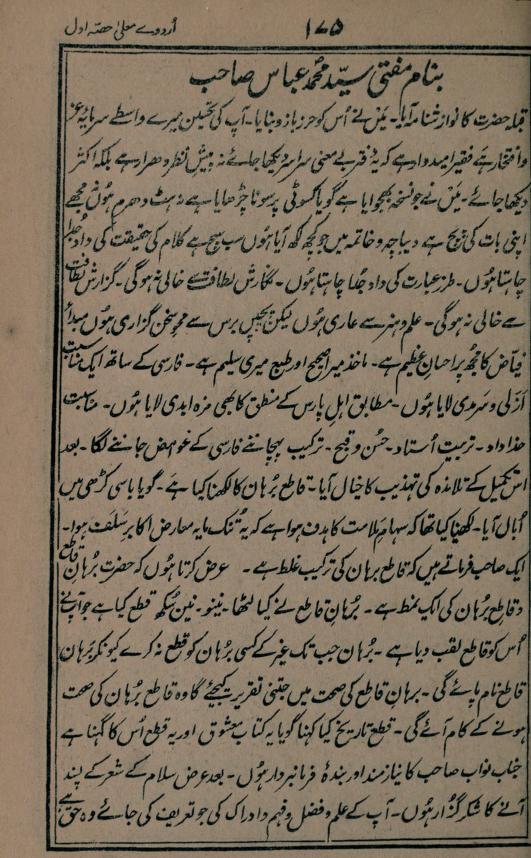 اُردوے معلیٰ حصّہ اوّل
۱۷۵
بنام مفتی سیّد محمد عباس صاحب
قبلہ حضرت کا نوازشنامہ آیا۔ میں نے اُس کو حرز بازو بنایا۔ آپ کی تحسین میرے واسطے سرمایۂ عز
و افتخار ہے فقیر امیدوار ہے کہ یہ دفتر بے معنی سراسر دیکھا جائے نہ پیش نظر دھرا رہے بلکہ اکثر
دیکھا جائے۔ میں نے جو نسخہ بھجوایا ہے گویا کسوٹی پر سونا چڑھایا ہے نہ ہٹ دھرم ہوں مجھے
اپنی بات کی پچ ہے دیباچہ و خاتمہ میں جو کچھ لکھ آیا ہوں سب سچ ہے کلام کی حقیقت کی داد جدا
چاہتا ہوں۔ طرز عبارت کی داد جدا چاہتا ہوں۔ نگارش لطافت سے خالی نہ ہوگی۔ گزارش لطافت
سے خالی نہ ہوگی۔ علم و ہنر سے عاری ہوں لیکن پچپن برس سے محو سخن گزاری ہوں مبدأ
فیّاض کا مجھ پر احسان عظیم ہے۔ ماخذ میرا صحیح اور طبع میری سلیم ہے۔ فارسی کے ساتھ ایک مناسبت
ازلی و سرمدی لایا ہوں۔ مطابق اہل پارس کے منطق کا بھی مزہ ابدی لایا ہوں۔ مناسبت
خداداد۔ تربیت اُستاد۔ حسن و قبح۔ ترکیب پہچاننے فارسی کے غوامض جاننے لگا۔ بعد
اس تکمیل کے تلامذہ کی تہذیب کا خیال آیا۔ قاطع بُرہان کا لکھنا کیا ہے۔ گویا باسی کڑھی میں
اُبال آیا۔ لکھنا کیا تھا کہ سہام ملامت کا ہدف ہوا ہے کہ یہ تنک مایہ معارض اکابر سلف ہوا۔
ایک صاحب فرماتے ہیں کہ قاطع برہان کی ترکیب غلط ہے۔ عرض کرتا ہوں کہ حضرت بُرہان قاطع
و قاطع بُرہان کی ایک نمط ہے۔ بُرہان قاطع نے کیا لٹھا۔ نینو۔ نین سُکھ قطع کیا ہے جو آپنے
اُس کو قاطع لقب دیا ہے۔ بُرہان جب تک غیر کے کسی بُرہان کو قطع نہ کرے کیونکر بُرہان
قاطع نام پائے گی۔ برہان قاطع کی صحت میں جتنی تقریر کیجئے گا وہ قاطع بُرہان کی صحت
ہونے کے کام آئے گی۔ قطع تاریخ کیا کہنا گویا یہ کتاب معشوق اور یہ قطع اُس کا گہنا ہے
جناب نواب صاحب کا نیازمند اور بندۂ فرمانبردار ہوں۔ بعد عرض سلام کے شعر کے پسند
آنے کا شکر گزار ہوں۔ آپ کے علم و فضل و فہم و ادراک کی جو تعریف کی جائے وہ حق ہے